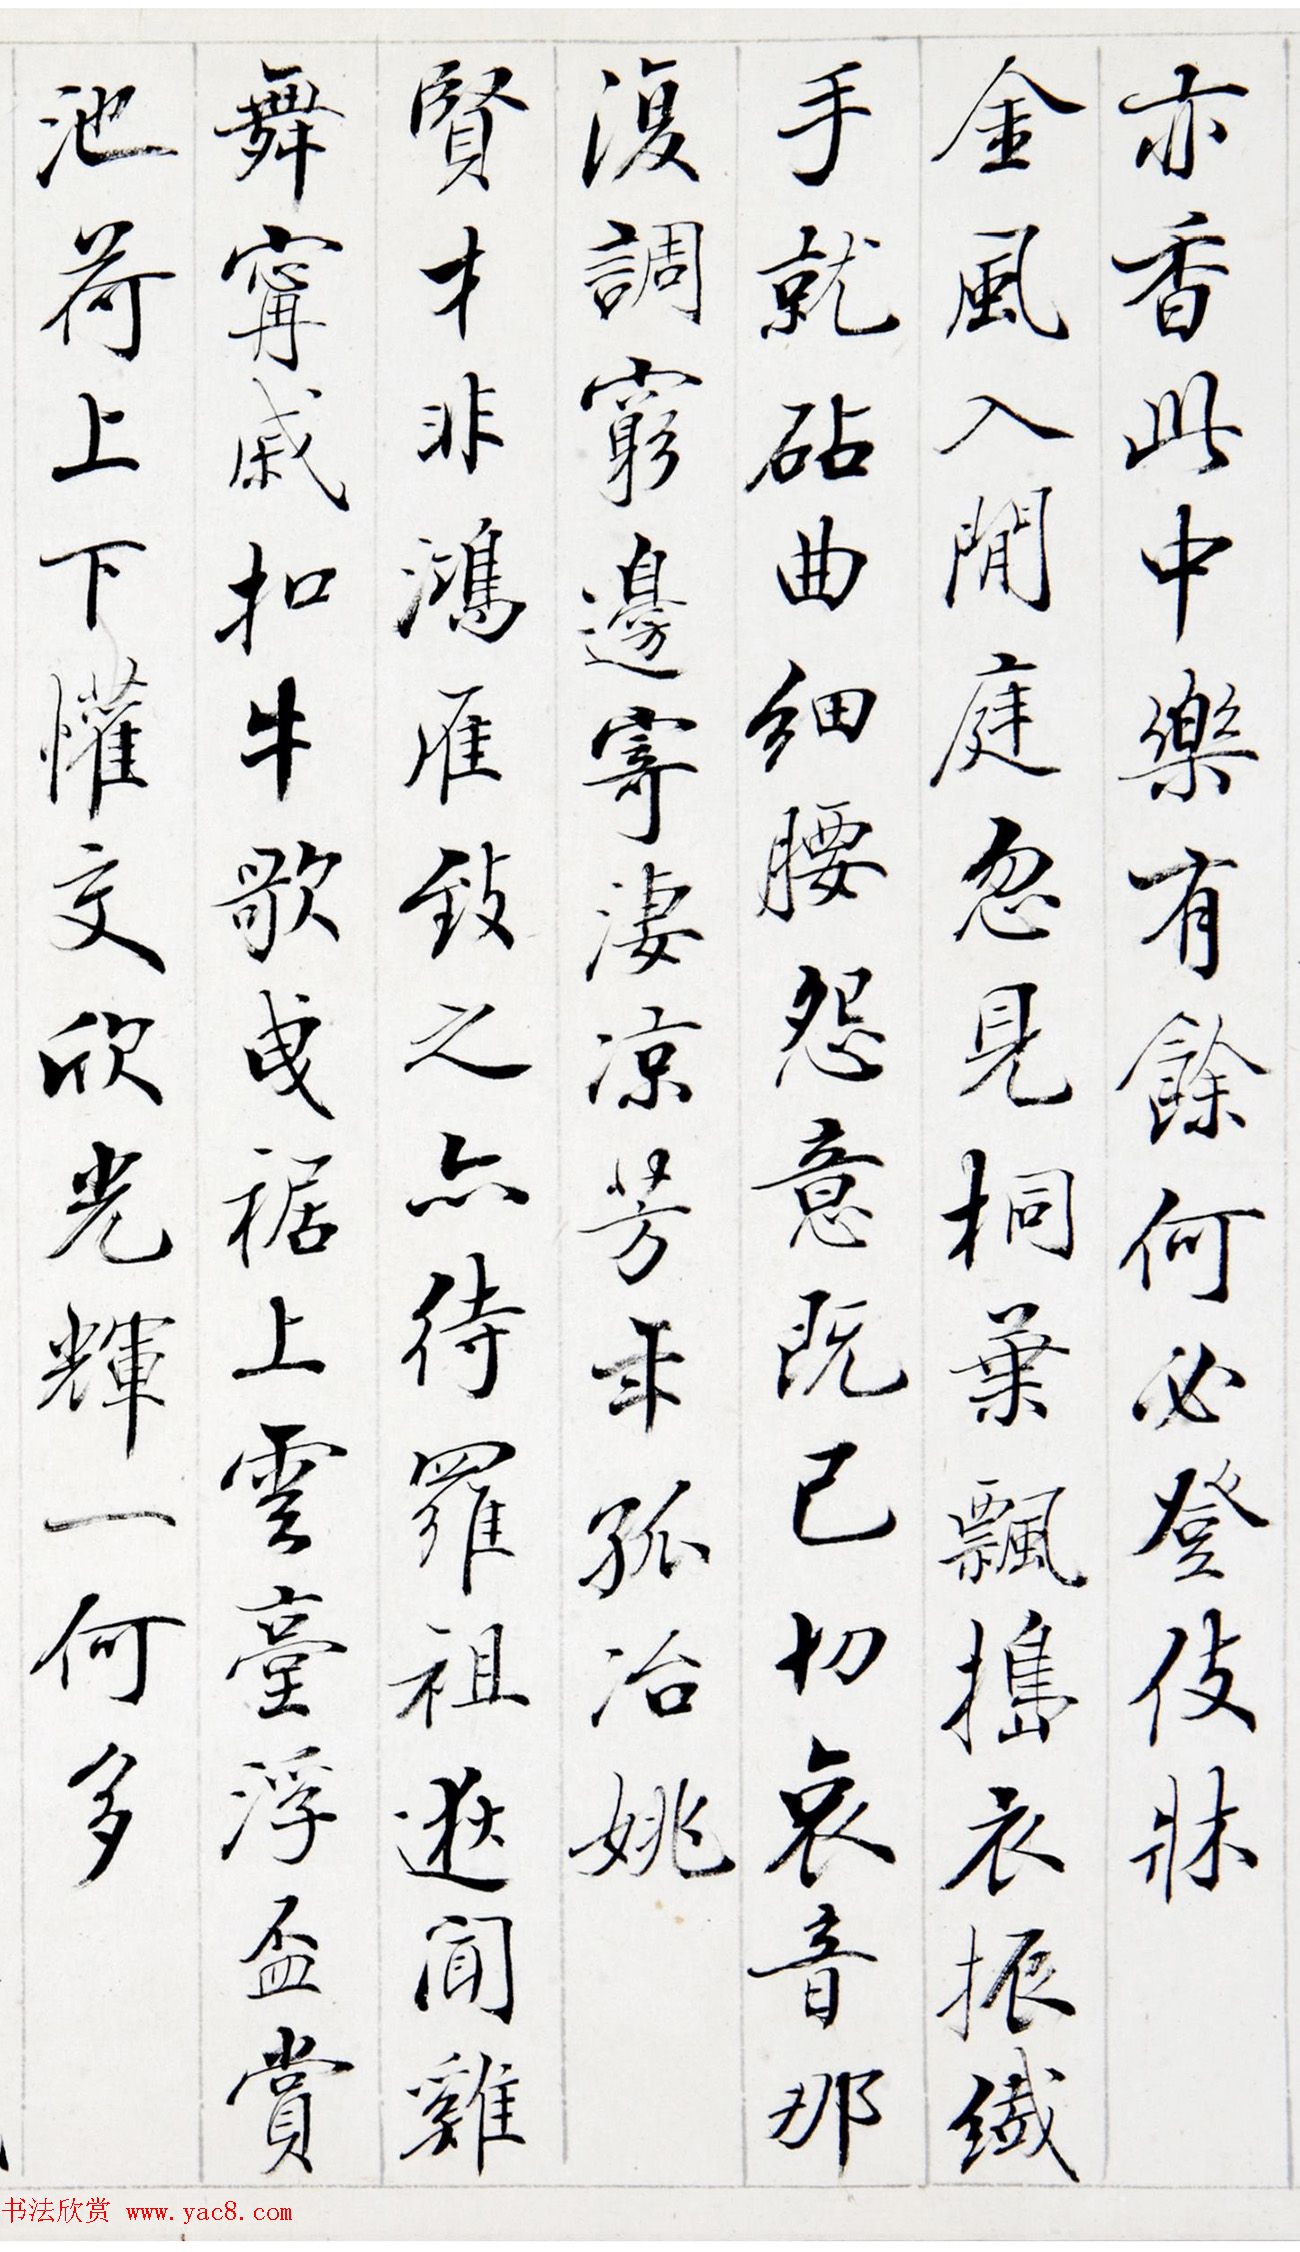 亦香此中樂有餘何必登伎牀
金風入閒庭忽見桐葉飄搗衣振纖
手就砧曲細腰怨意既已切哀音那
復調窮邊寄淒涼芳年孤冶姚
賢才非鴻雁致之亦待羅祖逖聞雞
舞甯戚扣牛歌曳裾上雲臺浮盃賞
池荷上下懽交欣光輝一何多
书法欣赏 www.yac8.com